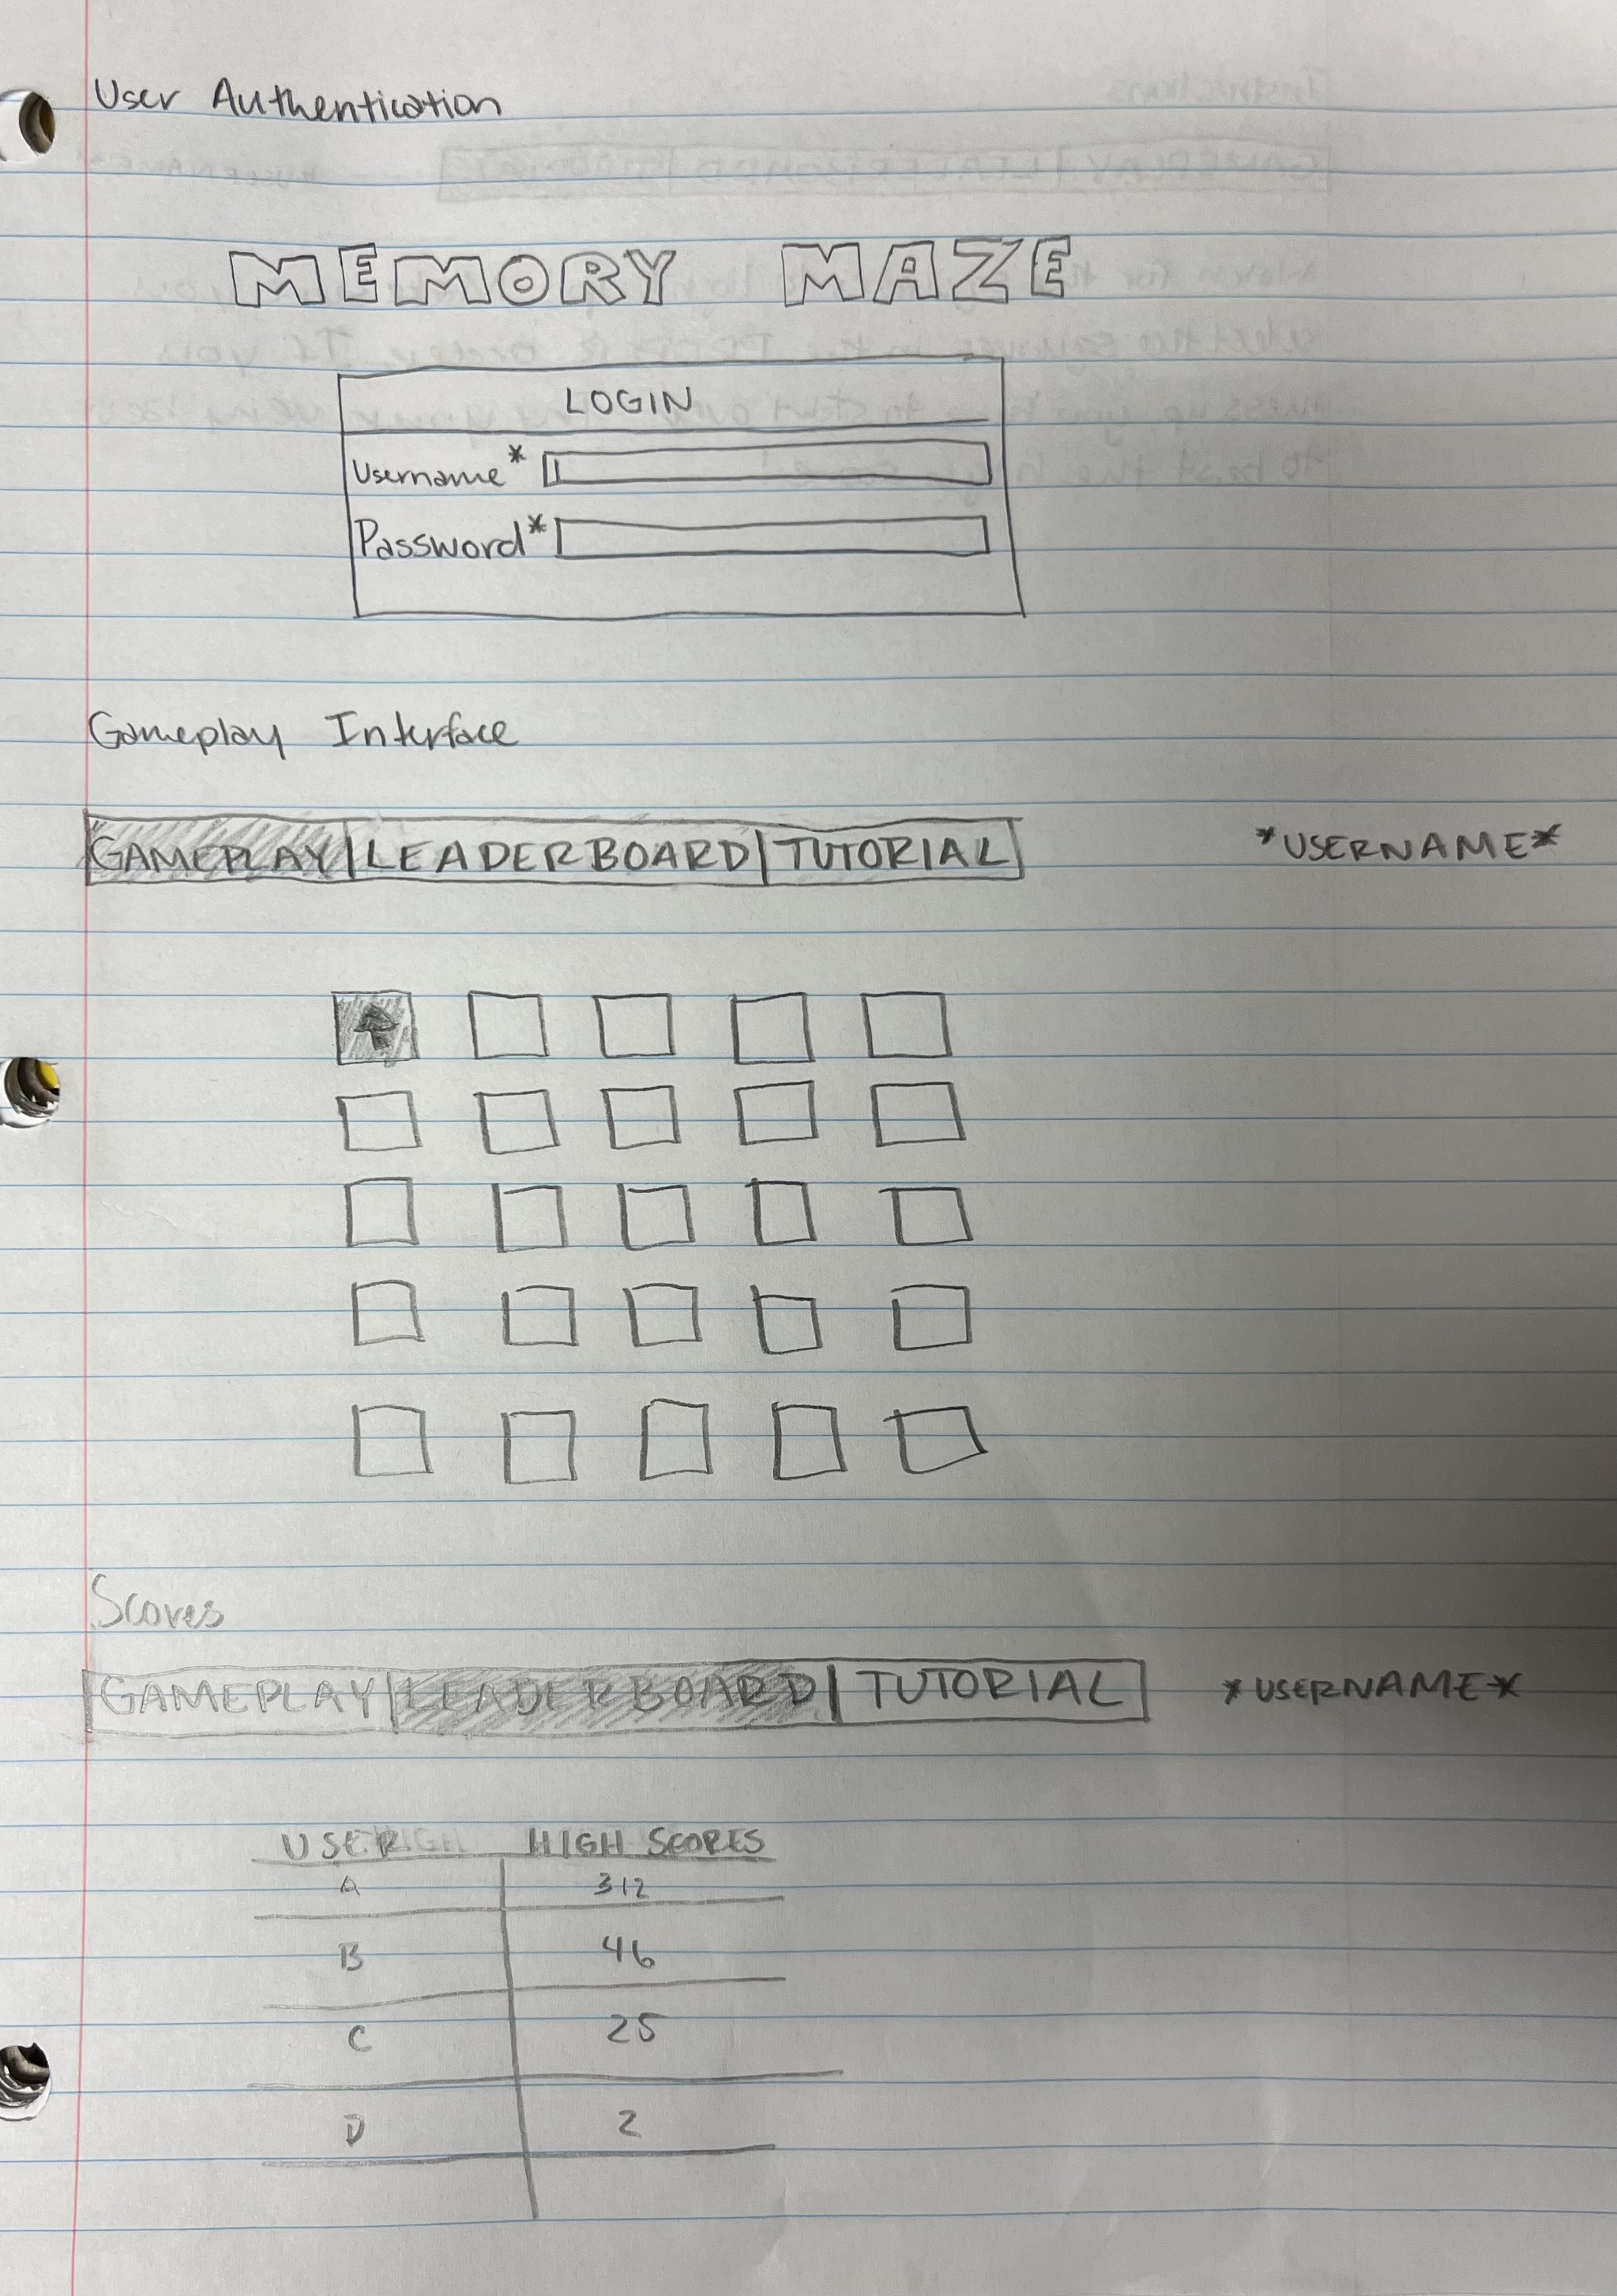 User Authentication
MEMORY MAZE
LOGIN
Username*
Password*
Gameplay Interface
GAMEPLAY | LEADERBOARD | TUTORIAL *USERNAME*
Scores
GAMEPLAY | LEADERBOARD | TUTORIAL *USERNAME*
USER HIGH SCORES
A 312
B 46
C 25
D 2